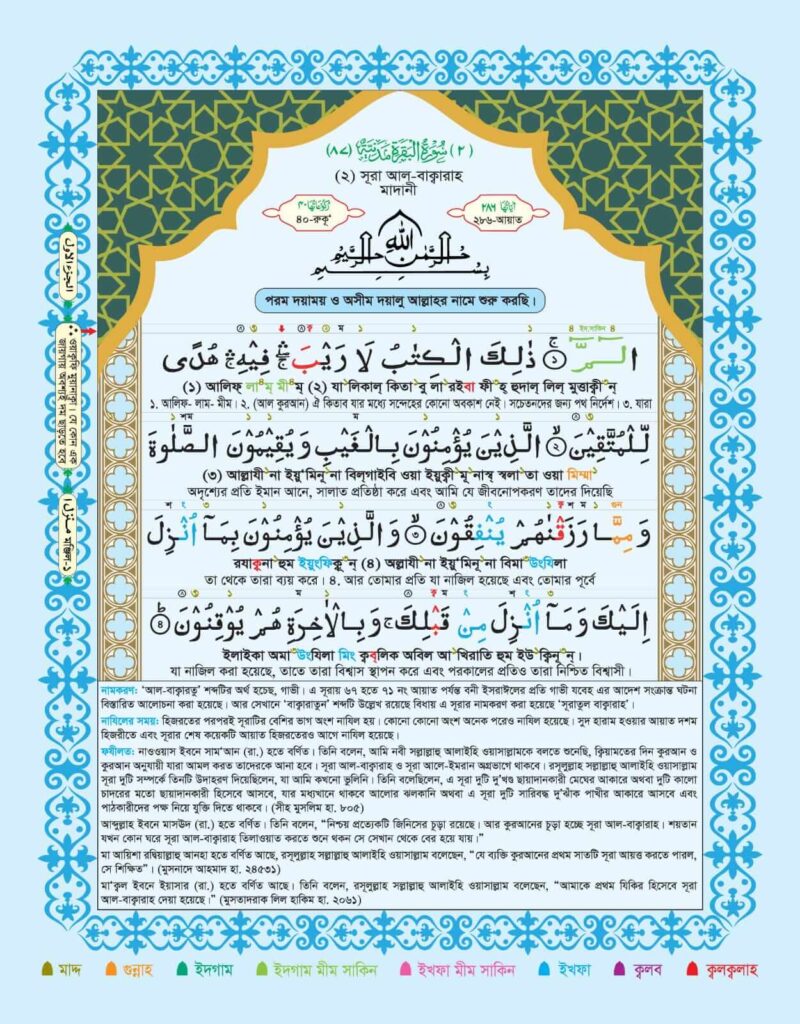 (٢) سُوْرَةُ الْبَقَرَةِ مَدَنِيَّةٌ (٨٧)
(২) সূরা আল-বাক্বারাহ
মাদানী
رُكُوْعَاتُهَا ٤٠
৪০-রুকূ'
اٰيَاتُهَا ٢٨٦
২৮৬-আয়াত
بِسْمِ اللّٰهِ الرَّحْمٰنِ الرَّحِيْمِ
পরম দয়াময় ও অসীম দয়ালু আল্লাহর নামে শুরু করছি।
الٓمّٓ ۚ ① ذٰلِكَ الْكِتٰبُ لَا رَيْبَ ۛ فِيْهِ ۛ هُدًى
(১) আলিফ্ লা৪ম্ মী৪ম্ (২) যা'লিকাল্ কিতা'বু লা'রইবা ফী'হ্ হুদাল্ লিল্ মুত্তাক্বী'ন্
১. আলিফ- লাম- মীম। ২. (আল কুরআন) ঐ কিতাব যার মধ্যে সন্দেহের কোনো অবকাশ নেই। সচেতনদের জন্য পথ নির্দেশ। ৩. যারা
لِّلْمُتَّقِيْنَ ② الَّذِيْنَ يُؤْمِنُوْنَ بِالْغَيْبِ وَيُقِيْمُوْنَ الصَّلٰوةَ
(৩) আল্লাযী'না ইয়ু'মিনূ'না বিল্গাইবি ওয়া ইয়ুক্বী'মূ'নাস্ব স্বলা'তা ওয়া মিম্মা'
অদৃশ্যের প্রতি ইমান আনে, সালাত প্রতিষ্ঠা করে এবং আমি যে জীবনোপকরণ তাদের দিয়েছি
وَمِمَّا رَزَقْنٰهُمْ يُنْفِقُوْنَ ③ وَالَّذِيْنَ يُؤْمِنُوْنَ بِمَآ اُنْزِلَ
রযাক্বূনা'হুম ইয়ুংফিকূ'ন্ (৪) অল্লাযী'না ইয়ু'মিনূ'না বিমা' উংযিলা
তা থেকে তারা ব্যয় করে। ৪. আর তোমার প্রতি যা নাজিল হয়েছে এবং তোমার পূর্বে
اِلَيْكَ وَمَآ اُنْزِلَ مِنْ قَبْلِكَ ۚ وَبِالْاٰخِرَةِ هُمْ يُوْقِنُوْنَ ④
ইলাইকা অমা' উংযিলা মিং ক্বব্লিক অবিল আ'খিরাতি হুম ইউ'ক্বিনূ'ন্।
যা নাজিল করা হয়েছে, তাতে তারা বিশ্বাস স্থাপন করে এবং পরকালের প্রতিও তারা নিশ্চিত বিশ্বাসী।
নামকরণ: 'আল-বাক্বারাতু' শব্দটির অর্থ হচ্ছে, গাভী। এ সূরায় ৬৭ হতে ৭১ নং আয়াত পর্যন্ত বনী ইসরাঈলের প্রতি গাভী যবেহ এর আদেশ সংক্রান্ত ঘটনা
বিস্তারিত আলোচনা করা হয়েছে। আর সেখানে 'বাক্বারাতুন' শব্দটি উল্লেখ রয়েছে বিধায় এ সূরার নামকরণ করা হয়েছে 'সূরাতুল বাক্বারাহ'।
নাযিলের সময়: হিজরতের পরপরই সূরাটির বেশির ভাগ অংশ নাযিল হয়। কোনো কোনো অংশ অনেক পরেও নাযিল হয়েছে। সুদ হারাম হওয়ার আয়াত দশম
হিজরীতে এবং সূরার শেষ কয়েকটি আয়াত হিজরতেরও আগে নাযিল হয়েছে।
ফযীলত: নাওওয়াস ইবনে সাম'আন (রা.) হতে বর্ণিত। তিনি বলেন, আমি নবী সল্লাল্লাহু আলাইহি ওয়াসাল্লামকে বলতে শুনেছি, ক্বিয়ামতের দিন কুরআন ও
কুরআন অনুযায়ী যারা আমল করত তাদেরকে আনা হবে। সূরা আল-বাক্বারাহ ও সূরা আলে-ইমরান অগ্রভাগে থাকবে। রসূলুল্লাহ সল্লাল্লাহু আলাইহি ওয়াসাল্লাম
সূরা দুটি সম্পর্কে তিনটি উদাহরণ দিয়েছিলেন, যা আমি কখনো ভুলিনি। তিনি বলেছিলেন, এ সূরা দুটি দু'খণ্ড ছায়াদানকারী মেঘের আকারে অথবা দুটি কালো
চাদরের মতো ছায়াদানকারী হিসেবে আসবে, যার মধ্যখানে থাকবে আলোর ঝলকানি অথবা এ সূরা দুটি সারিবদ্ধ দু'ঝাঁক পাখীর আকারে আসবে এবং
পাঠকারীদের পক্ষ নিয়ে যুক্তি দিতে থাকবে। (সহীহ মুসলিম হা. ৮০৫)
আব্দুল্লাহ ইবনে মাসউদ (রা.) হতে বর্ণিত। তিনি বলেন, "নিশ্চয় প্রত্যেকটি জিনিসের চূড়া রয়েছে। আর কুরআনের চূড়া হচ্ছে সূরা আল-বাক্বারাহ। শয়তান
যখন কোন ঘরে সূরা আল-বাক্বারাহ তিলাওয়াত করতে শুনে থকন সে সেখান থেকে বের হয়ে যায়।"
মা আয়িশা রদ্বিয়াল্লাহু আনহা হতে বর্ণিত আছে, রসূলুল্লাহ সল্লাল্লাহু আলাইহি ওয়াসাল্লাম বলেছেন, "যে ব্যক্তি কুরআনের প্রথম সাতটি সূরা আয়ত্ত করতে পারল,
সে শিক্ষিত"। (মুসনাদে আহমাদ হা. ২৪৫৩১)
মা'কুল ইবনে ইয়াসার (রা.) হতে বর্ণিত আছে। তিনি বলেন, রসূলুল্লাহ সল্লাল্লাহু আলাইহি ওয়াসাল্লাম বলেছেন, "আমাকে প্রথম যিকির হিসেবে সূরা
আল-বাক্বারাহ দেয়া হয়েছে।" (মুসতাদরাক লিল হাকিম হা. ২০৬১)
الجزء الاول
ওয়াক্বফি মুয়ানাকা। যে কোন এক
জায়গায় অবশ্যই দম ছাড়তে হবে
منزل ١ মঞ্জিল-১
মাদ্দ গুন্নাহ ইদগাম ইদগাম মীম সাকিন ইখফা মীম সাকিন ইখফা ক্বলব ক্বলক্বলাহ